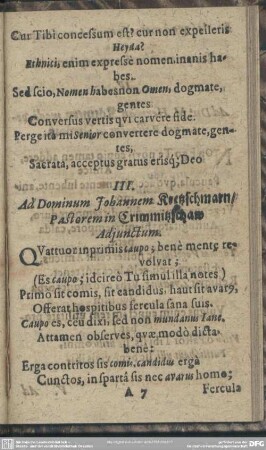 Cur Tibi concessum est? cur non expelleris
Heyda?
Ethnici, enim expressè nomen inanis ha-
bes.
Sed scio, Nomen habes non Omen, dogmate,
gentes
Conversus vertis qvi carvére fide.
Perge ità mi Senior convertere dogmate, gen-
tes,
Sacrata, acceptus gratus erisq; Deo
III.
Ad Dominum Johannem Kretzschmarn/
Pastorem in Crimmitzschaw
Adjunctum.
QVattuor inprimis caupo; benè mente re-
volvat;
(Es caupo; idcircò Tu simul illa notes)
Primò sit comis, sit candidus, haut sit avarg,
Offerat hospitibus fercula sana suis.
Caupo es, ceu dixi, sed non mundanus Iane,
Attamen observes, quæ modò dicta
bene:
Erga contritos sis comis, candidus ergà
Cunctos, in spartâ sis nec avarus homo;
A 7
Fercula